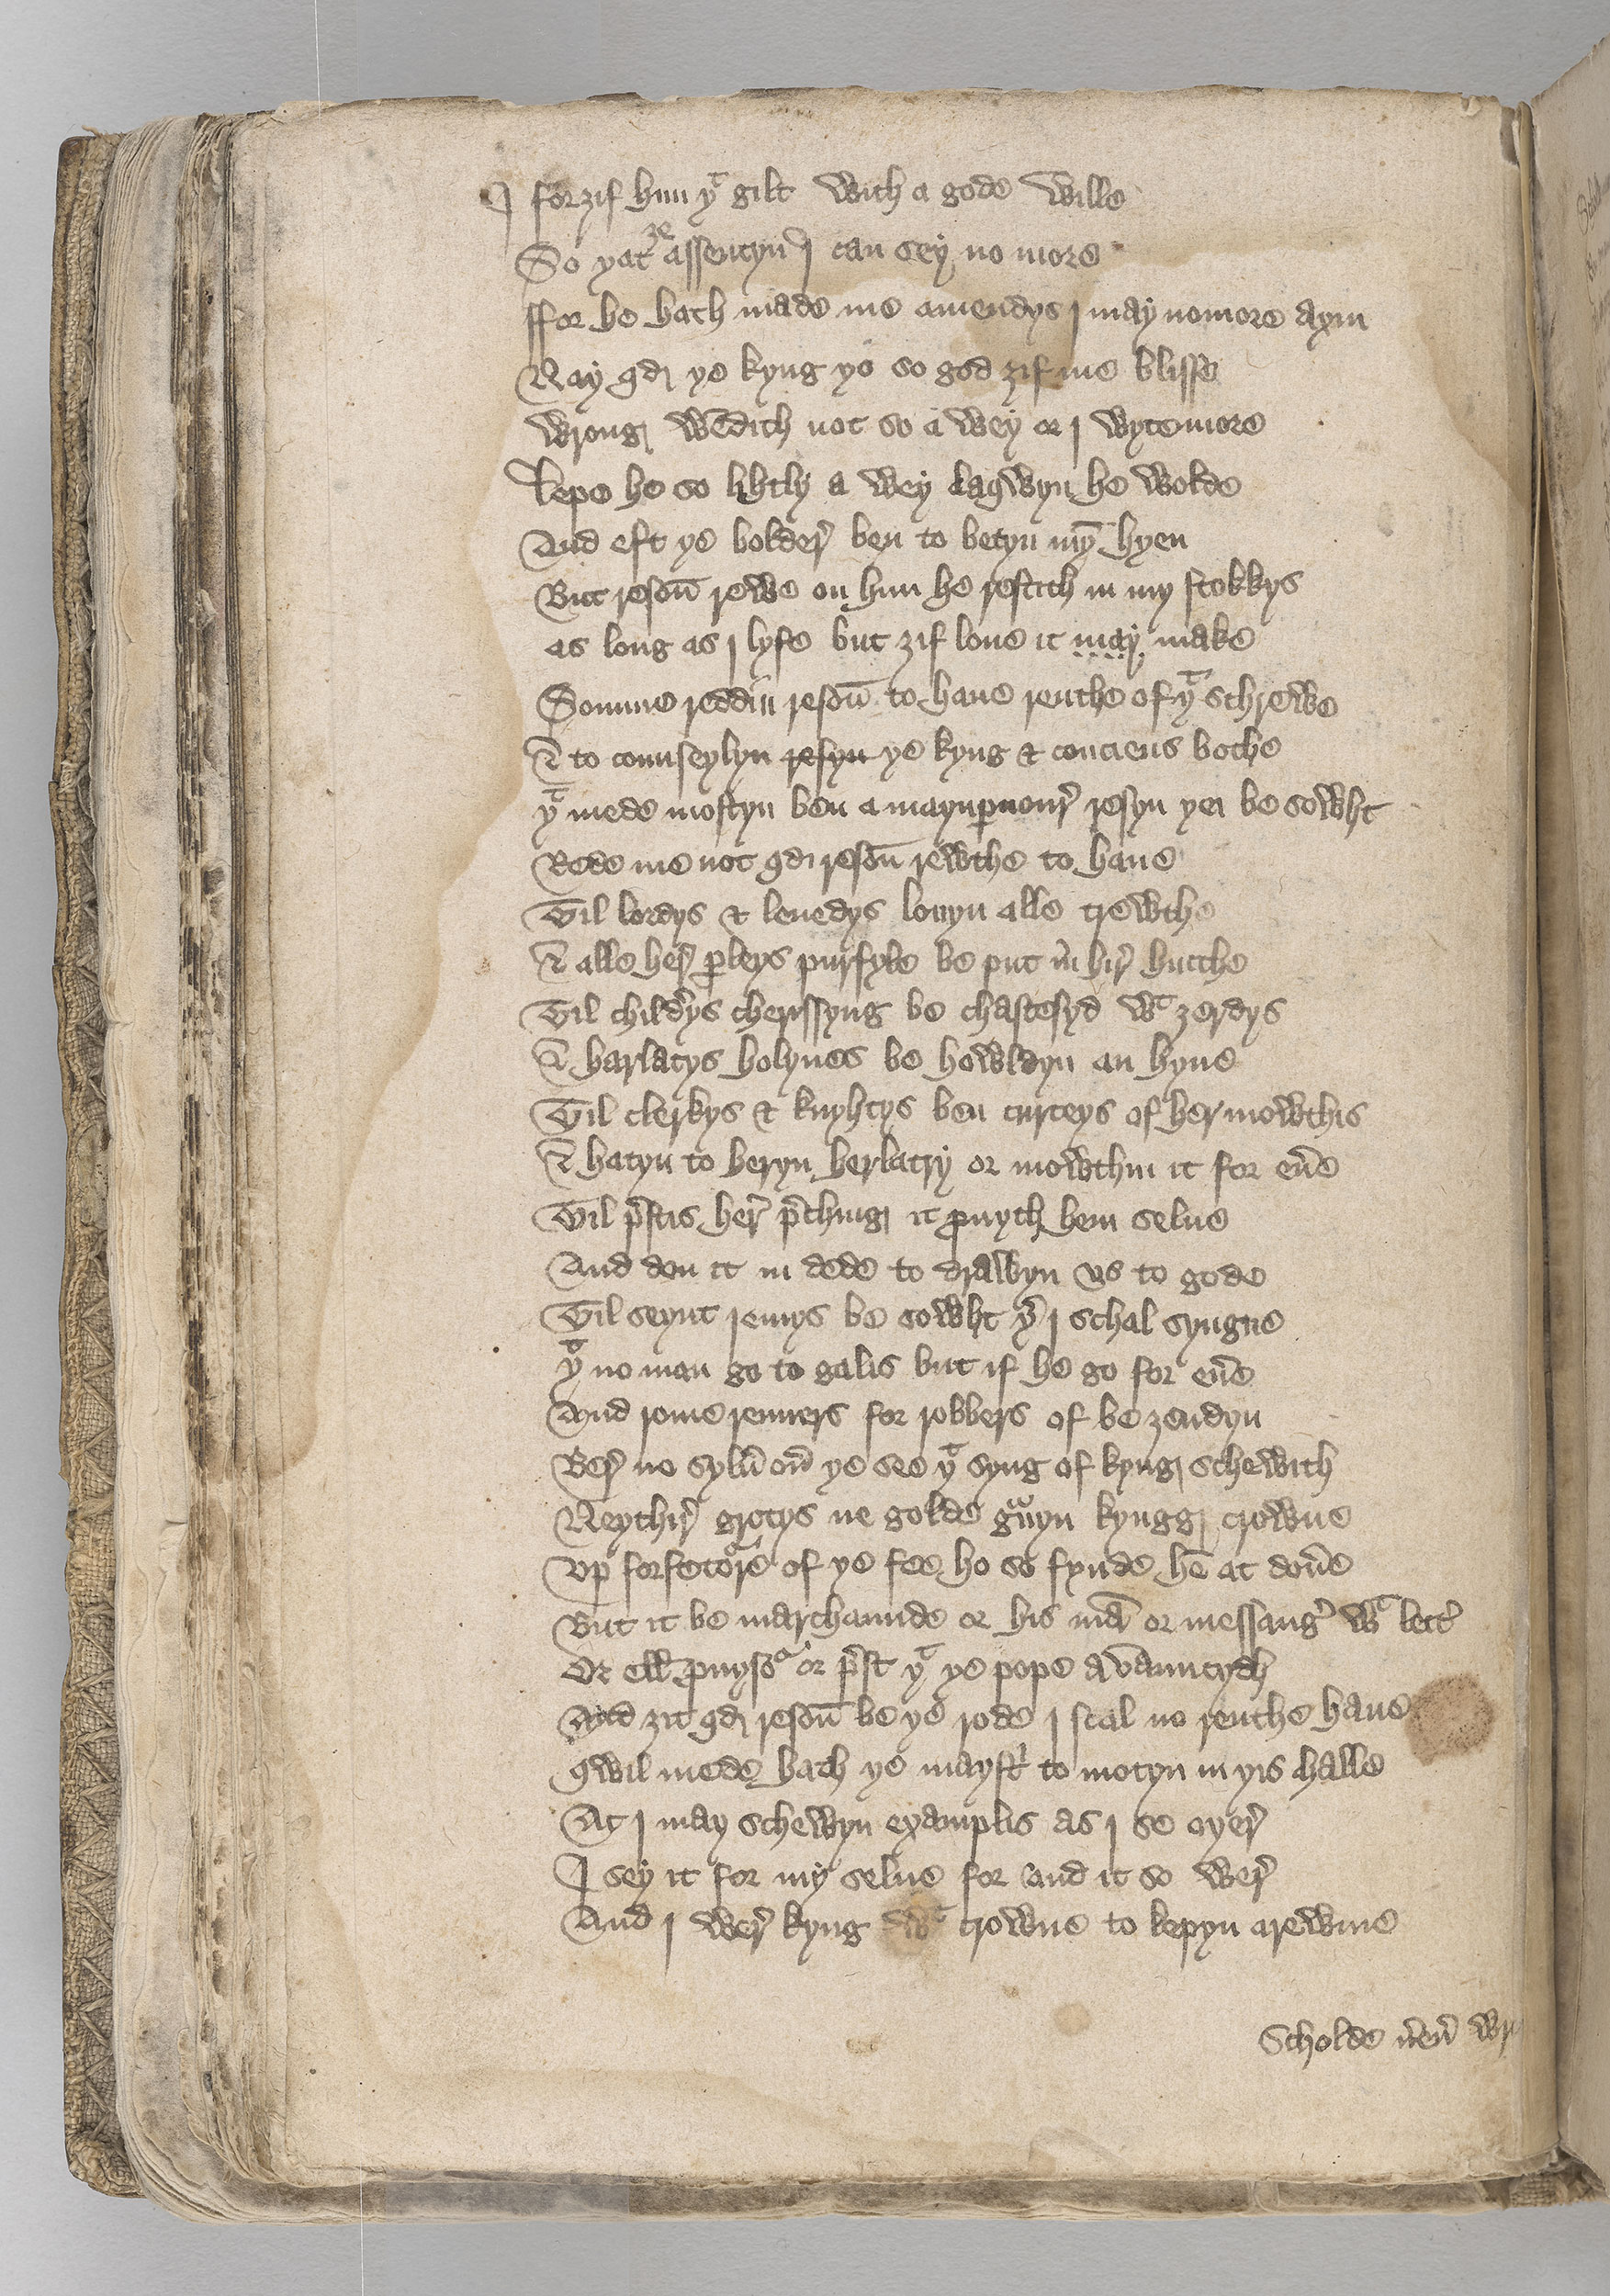 I forzif him yt gilt with a gode wille
So yat ze assentyn I can sey no more
ffor he hath made me amendys I may nomore axin
Nay qd ye kyng yo so god zif me blisse
Wrong wēdith not so a wey or I wyte more
Lepe he so lihtly a wey lagwyn he wolde
And eft ye bolder ben to betyn mȳ hyen
But resoun rewe on him he restith in my stokkys
as long as I lyfe but zif loue it may make
Somme reddin resoun to haue reuthe of yt schrewe
& to counseylyn resyn ye kyng & conciens bothe
yt mede mostyn ben a maynpnour resyn yei be sowht
Rede me not qd resoun rewthe to haue
Til lordys & leuedys louyn alle trewthe
& alle her pleys purfyle be put in hir hucche
Til childrys cherissyng be chastesyd wt zerdys
& harlatys holynes be howldyn an hyne
Til clerkys & knyhtys ben curteys of her mowthis
& hatyn to heryn herlatry or mowthin it for eue
Til pstis her pching it puyth hem selue
And don it in dede to drawyn us to gode
Til seynt iemys be sowht yer I schal syngne
yt no man go to galis but if he go for eue
And rome renners for robbers of be zendyn
Ber no sylu ou ye see yt syng of kyng schewith
Neythir grotys ne golde gūyn kyngg crowne
Up forfetore of ye fee ho so fynde hē at doue
But it be marchaunde or his mā or messang wt lett
Or ell puyso or pst yt ye pope avauncydh
And zit qd resoun be ye rode I scal no reuthe haue
qwil mede hath ye mayst to motyn in yis halle
At I may schewyn examplis as I se oyer
I sey it for my selue for and it so wer
And I wer kyng wt crowne to kepyn a rewme
Scholde neu